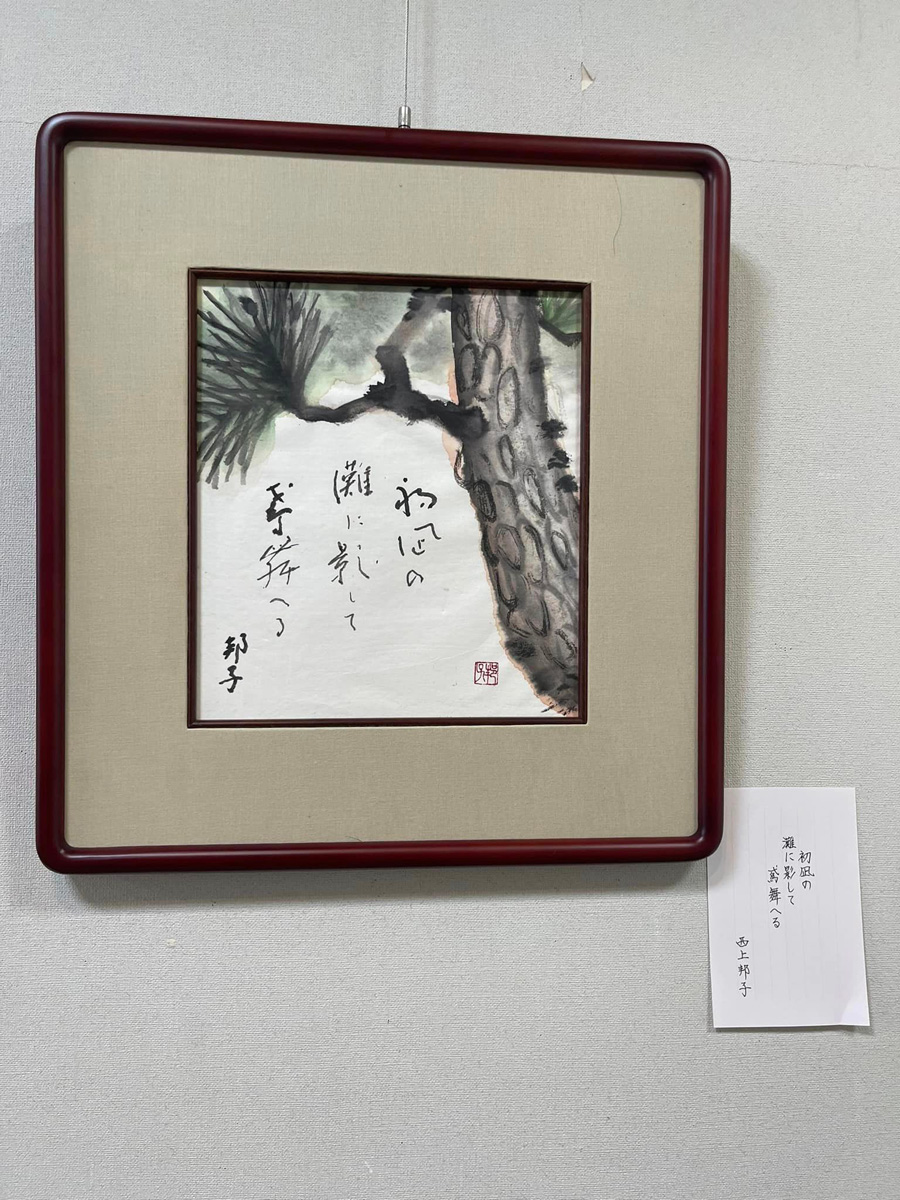 初凪の
灘に影して
鳶舞へる
邦子
初凪の
灘に影して
鳶舞へる
西上邦子